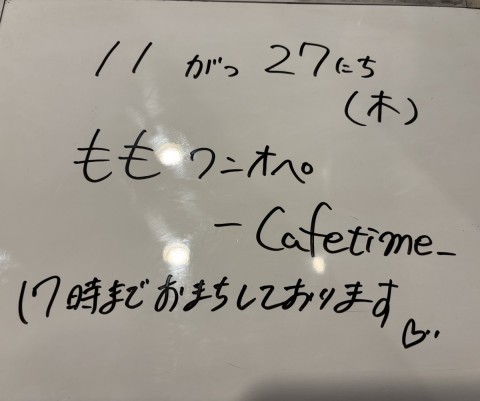 11がつ27にち
(木)
ももワンオペ。
-Cafetime-
17時までおまちしております♡